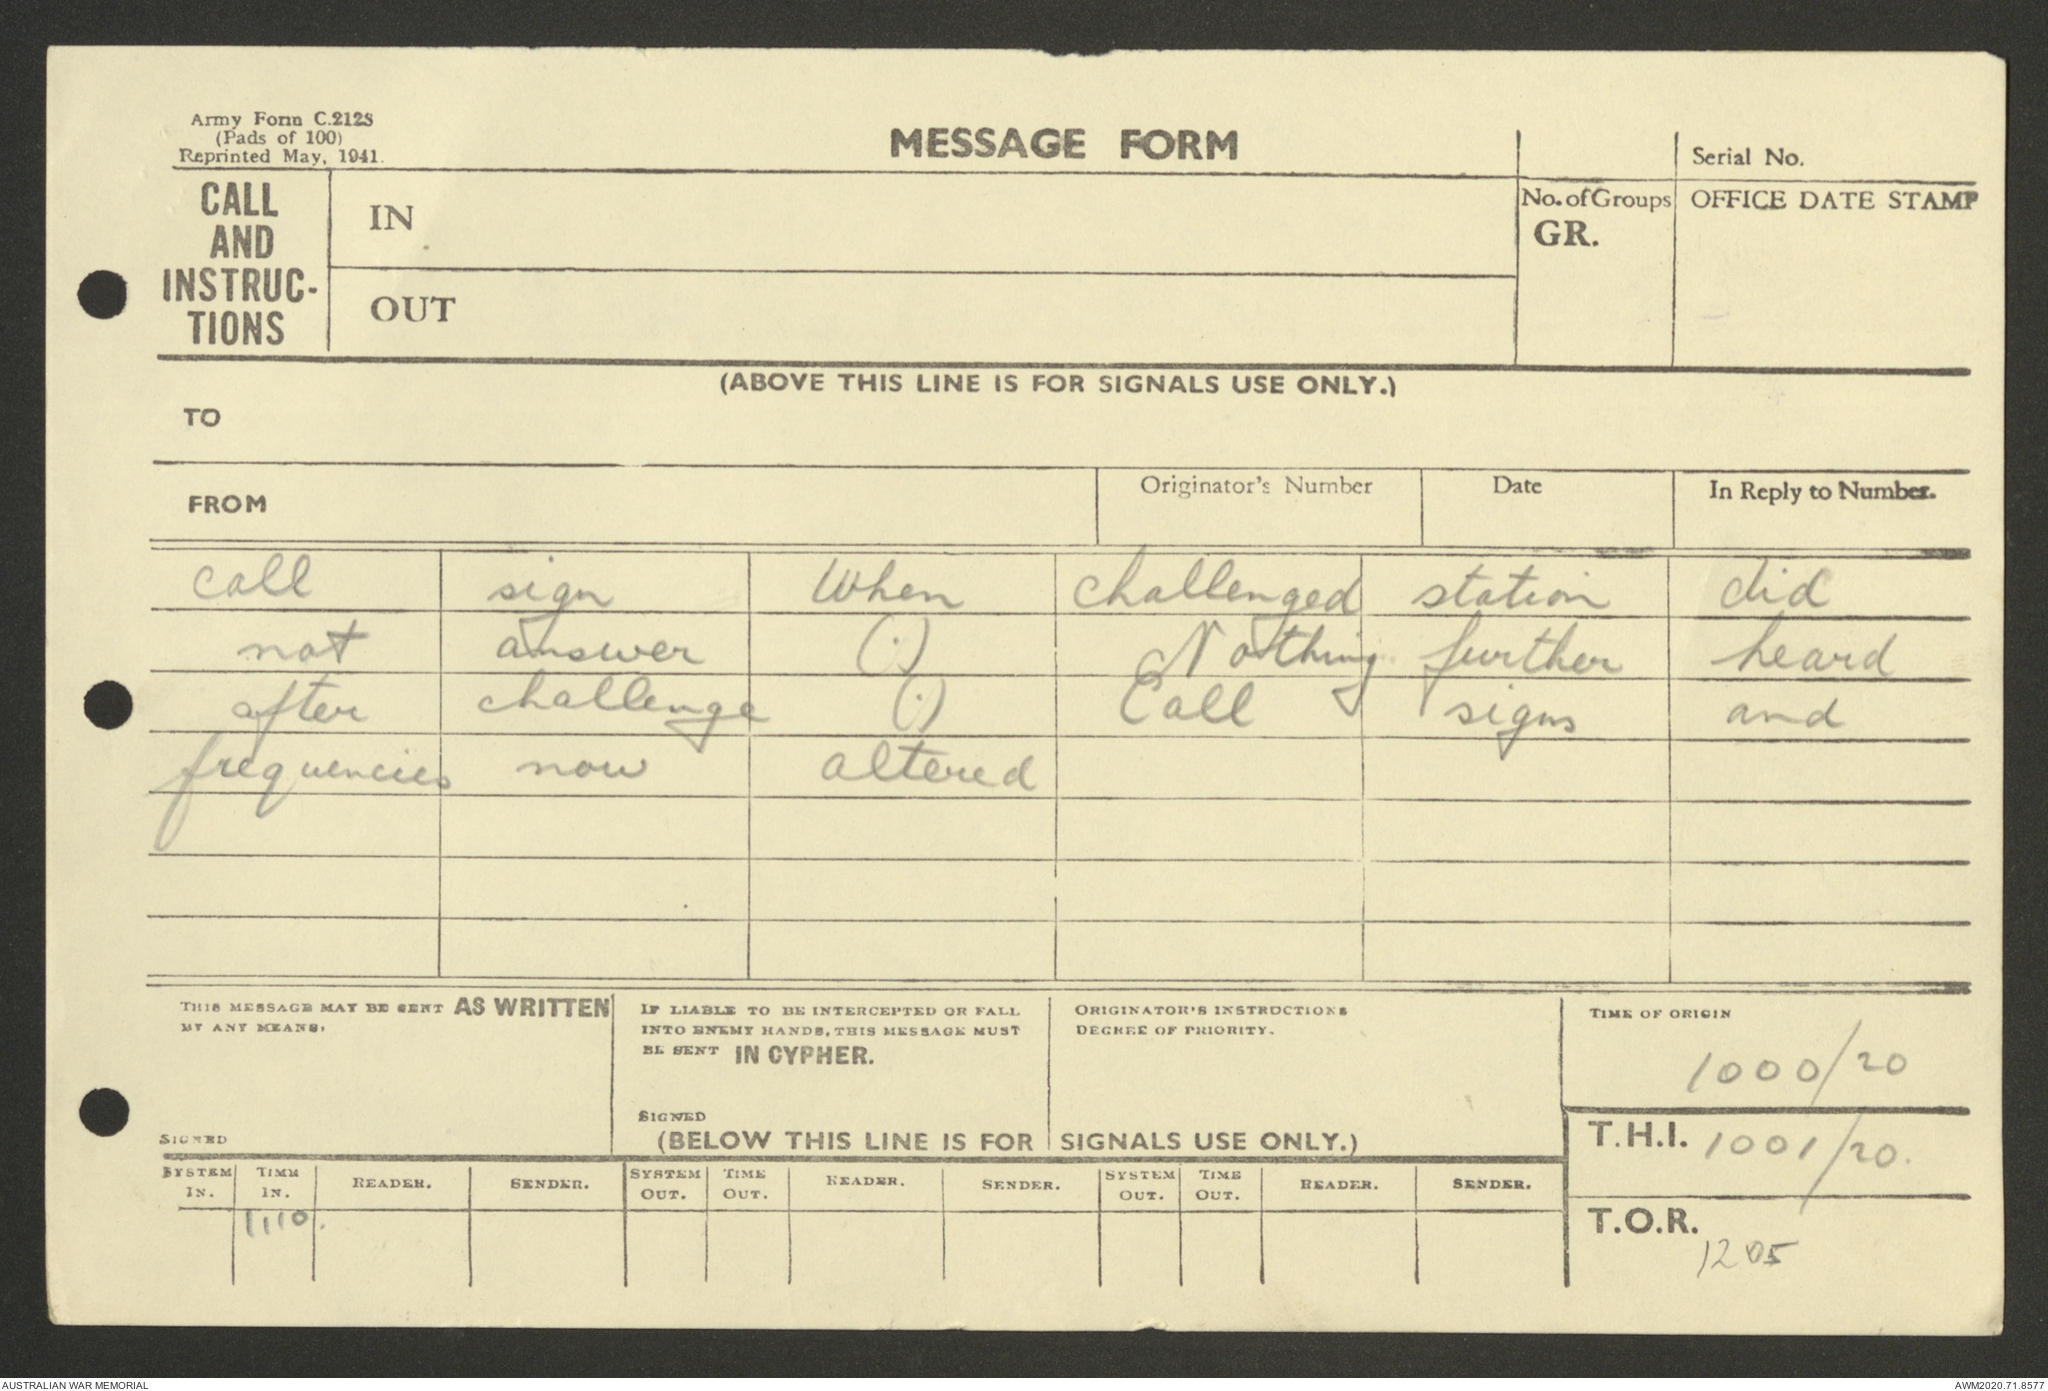 Army Form C.2128
(Pads of 100)
Reprinted May, 1941.
MESSAGE FORM
Serial No.
CALL
AND
INSTRUC-
TIONS
IN
OUT
No. of Groups
GR.
OFFICE DATE STAMP
(ABOVE THIS LINE IS FOR SIGNALS USE ONLY.)
TO
FROM
Originator's Number
Date
In Reply to Number.
call sign When challenged station did
not answer (.) Nothing further heard
after challenge (.) Call signs and
frequencies now altered
THIS MESSAGE MAY BE SENT AS WRITTEN
BY ANY MEANS.
SIGNED
IF LIABLE TO BE INTERCEPTED OR FALL
INTO ENEMY HANDS, THIS MESSAGE MUST
BE SENT IN CYPHER.
SIGNED
ORIGINATOR'S INSTRUCTIONS
DEGREE OF PRIORITY.
TIME OF ORIGIN
1000/20
(BELOW THIS LINE IS FOR SIGNALS USE ONLY.)
T.H.I. 1001/20.
SYSTEM IN. TIME IN. READER. SENDER. SYSTEM OUT. TIME OUT. READER. SENDER. SYSTEM OUT. TIME OUT. READER. SENDER.
1110.
T.O.R.
1205
AUSTRALIAN WAR MEMORIAL
AWM2020.71.8577